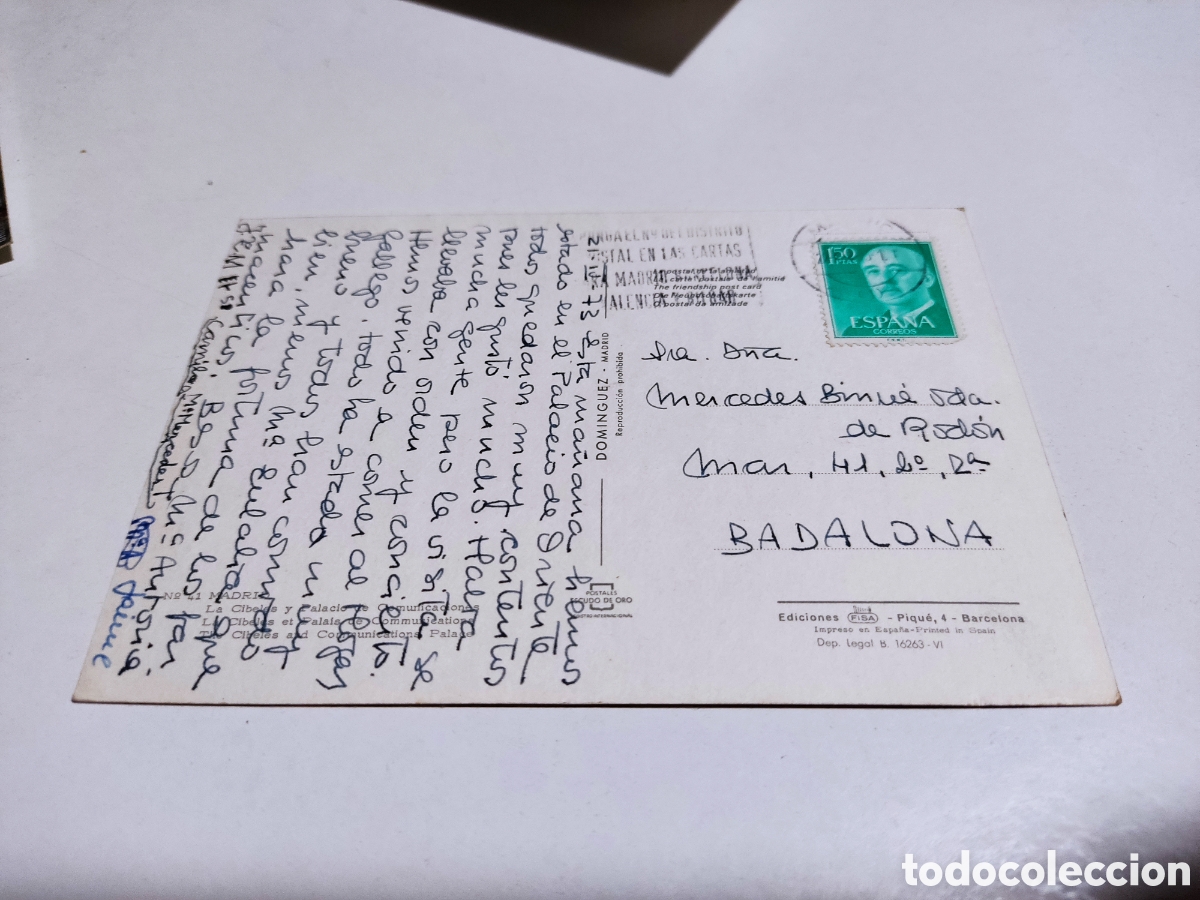 21-IV-73 Esta mañana hemos
estado en el Palacio de Oriente
todos quedaron muy contentos
pues les gustó mucho. Había
mucha gente pero la visita se
llevaba con orden y concierto.
Hemos venido a comer al
Gallego, todo ha estado muy
bueno y todos han comido
bien, menos Mª
mana la fortuna de los que
Besos Mª Antonia
Jaume
PONGA EL Nº DEL DISTRITO
POSTAL EN LAS CARTAS
PARA MADRID
VALENCIA
The friendship post card
DOMINGUEZ - MADRID
Reproducción prohibida
1'50
PTAS
ESPAÑA
CORREOS
Sra. Dña.
Mercedes Binué Vda.
de Rodón
Mar, 41, 2º, 2ª
BADALONA
Nº 41 MADRID
La Cibeles y Palacio de Comunicaciones
La Cibeles et Palais de Communications
The Cibeles and Communications Palace
POSTALES
ESCUDO DE ORO
Ediciones FISA - Piqué, 4 - Barcelona
Impreso en España-Printed in Spain
Dep. Legal B. 16263-VI
todocoleccion